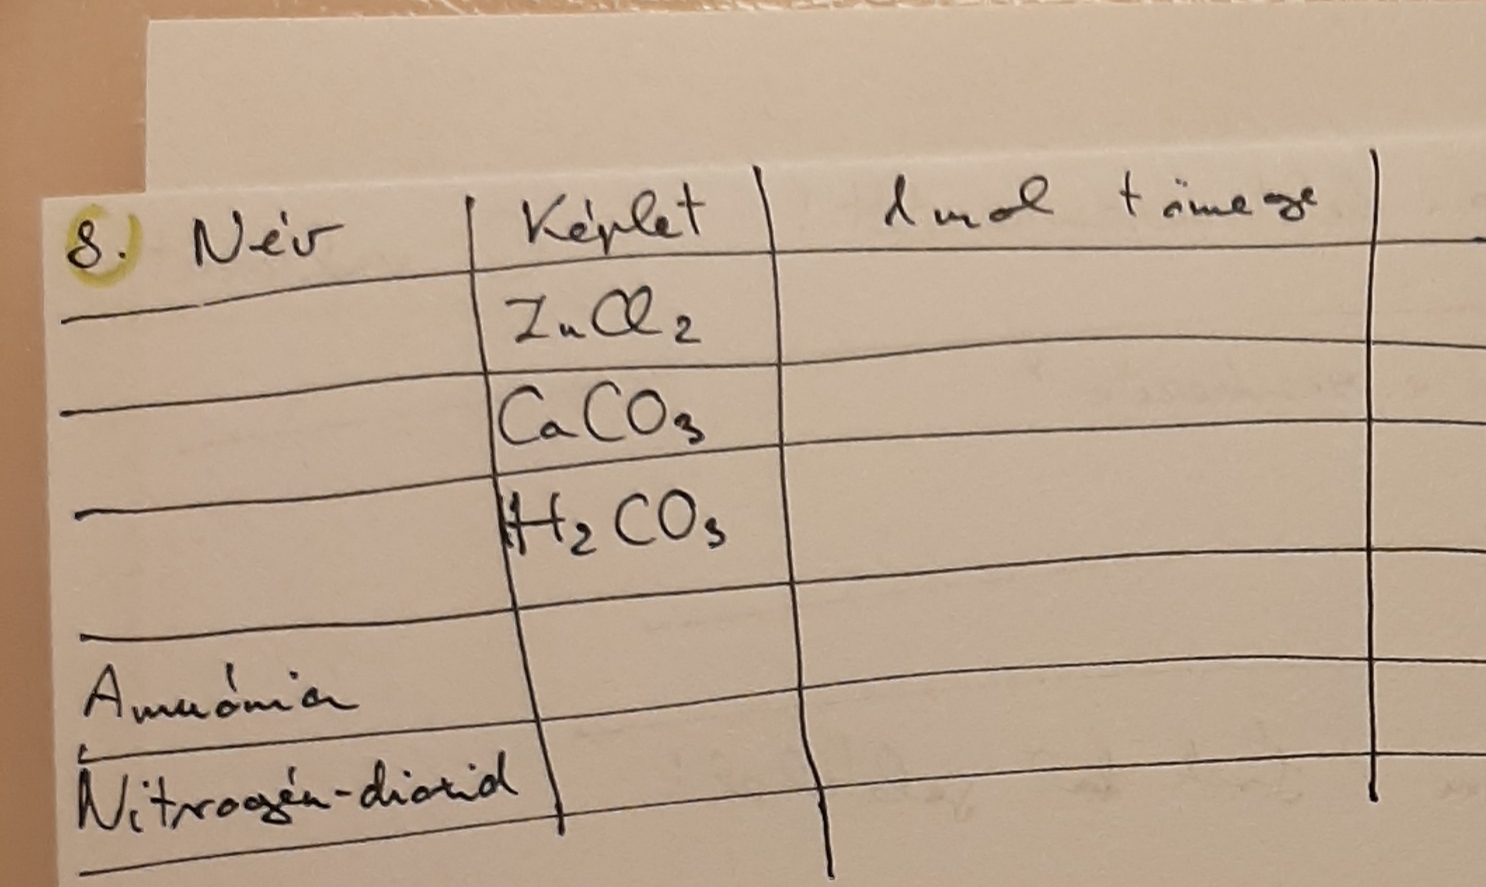 8. Név Képlet 1 mol tömege
ZnCl2
CaCO3
H2CO3
Ammónia
Nitrogén-dioxid